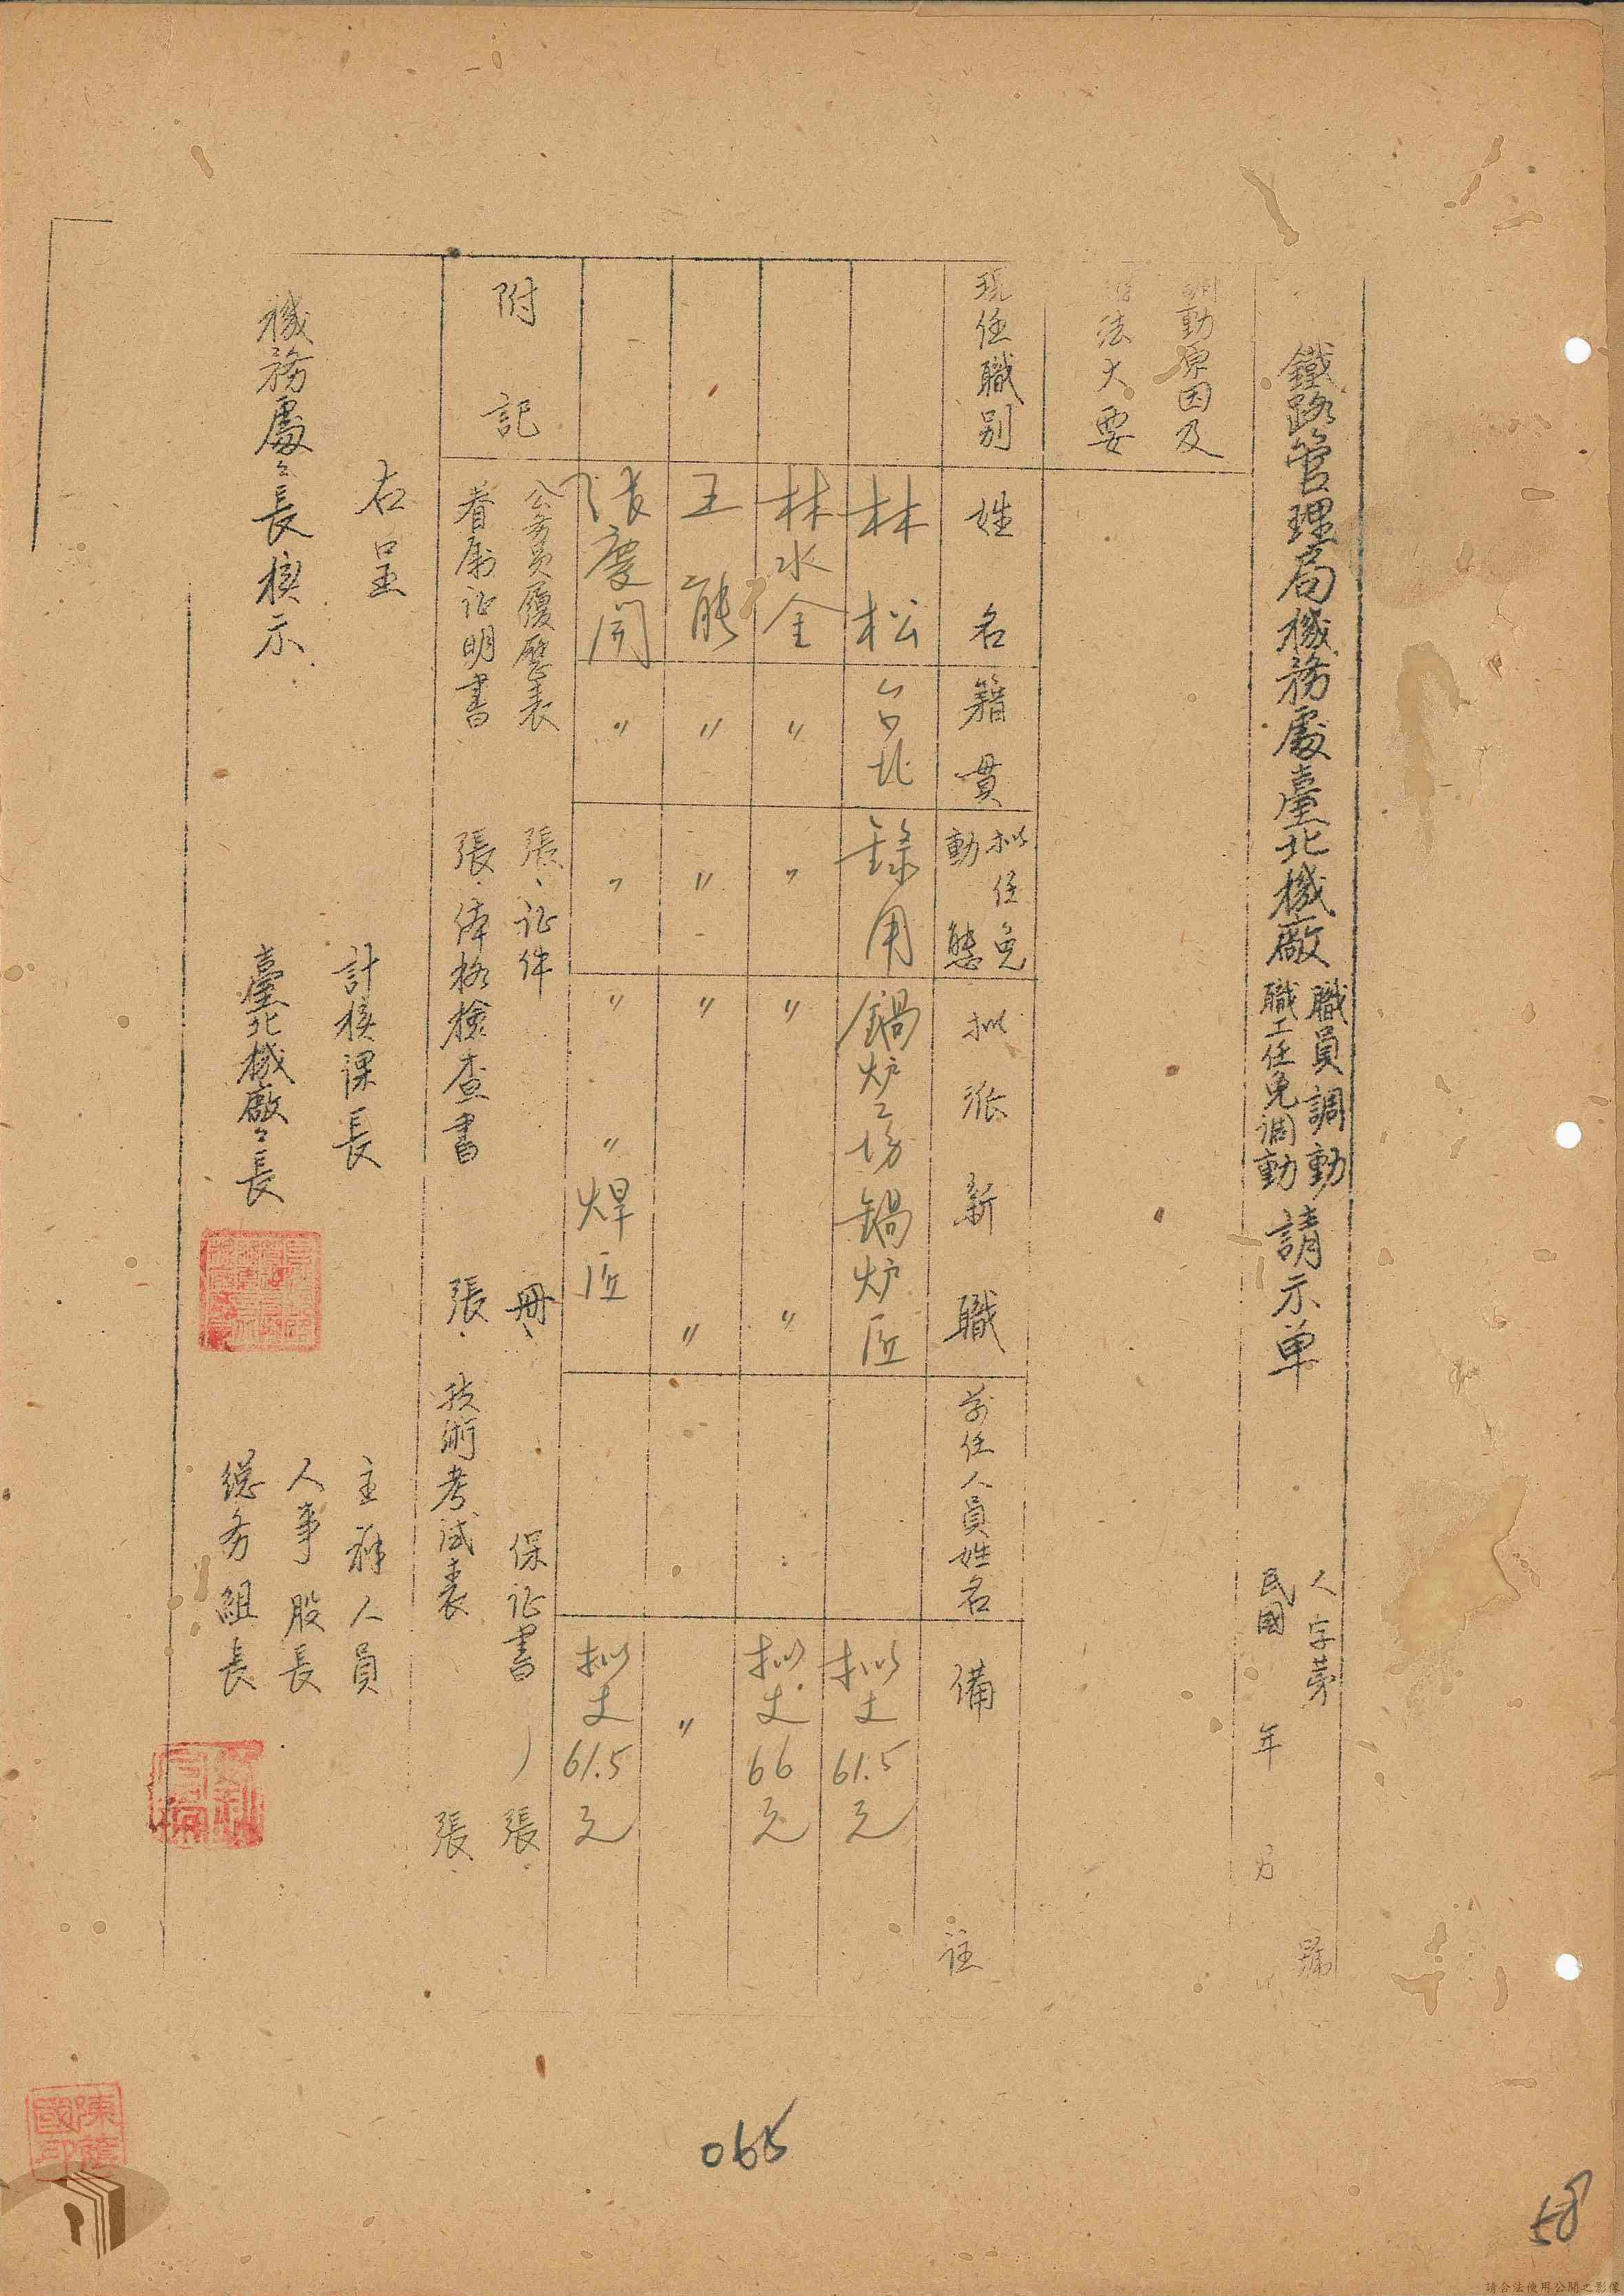 鐵路管理局機務處臺北機廠
職員調動
職工任免調動
請示单
人字第　號
民國　年　月　日
調動原因及
辦法大要
現任職別　姓名　籍貫　拟任免動態　拟派新職　前任人員姓名　備註
林松　台北　錄用　鍋炉工場鍋炉匠　拟支61.5元
林水金　〃　〃　〃　〃　拟支66元
王能　〃　〃　〃　〃　〃
張慶開　〃　〃　〃　〃焊匠　拟支61.5元
附記
公务員履歷表　張、証件　冊、保証書　張
眷屬証明書　張、体格檢查書　張、技術考試表　張
右呈
機務處々長核示
計核課長
臺北機廠々長
主辦人員
人事股長
総务組長
065
58
請合法使用公開之影像